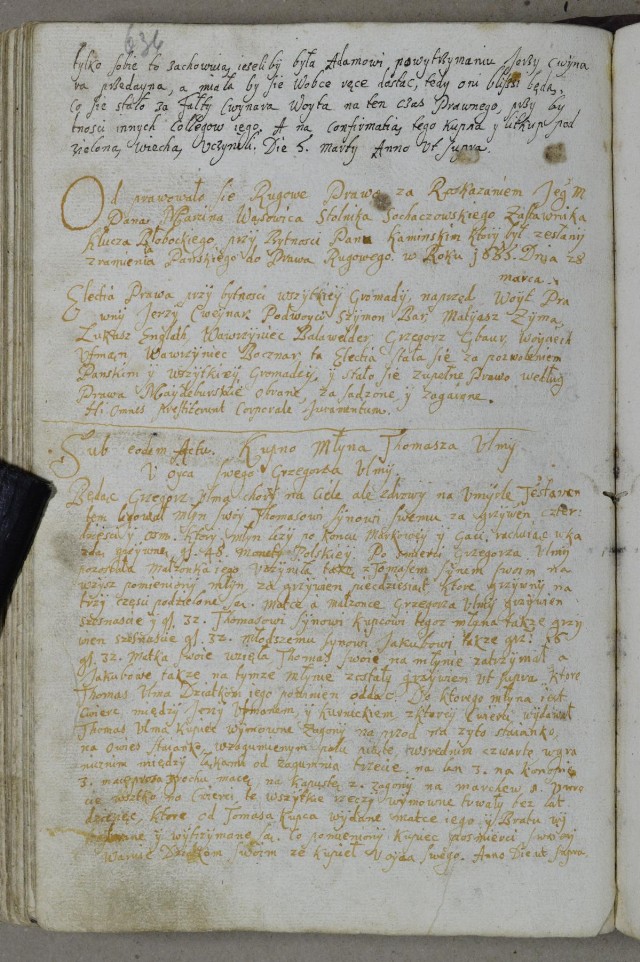 636
tylko sobie to zachowuią ieseliby była Adamowi, po wytrzymaniu Jerzy Cwyna
ra przedayna, a miała by się Wobce ręce dostać, tedy oni bliżsi będą,
Co się stało za Jalty Cwynara Woyta na ten czas Prawnego, przy by
tnosci innych Collegow iego. A na confirmatią tego Kupna y litkup pod
zieloną wiechą Uczynili. Die 5. marty Anno Ut supra.
Od prawowało sie Rugowe Prawo za Roskazaniem Jeg M
Pana Marcina Wąsowica Stolnika Sochaczowskiego Zastawnika
klucza Błobockiego, przy Bytnosci Pana Kaminskim ktory był zesłany
z ramienia Pańskiego do Prawa Rugowego. w Roku 1685. Dnia 28
marca.
Electia Prawa przy bytnosci wszytkiey Gromady, naprzod Woyt Pra
wny Jerzy Cweynar, Podwoyci Szymon Bar, Matyasz Zyma,
Lukasz Englath, Wawrzyniec Balawelder, Grzegorz Gbaur, Woyciech
Utman Wawrzyniec Bocznar, ta Electia stała się za pozwoleniem
Panskim y wszytkiey Gromadey, y stało się zupełne Prawo według
Prawa Maydeburskie obrane, zasadzone y zagaione.
Hi omnes prestiterunt Corporale Juramentum.
Sub eodem Actu. Kupno Młyna Thomasza Ulmy
U Oyca swego Grzegorza Ulmy
Będąc Grzegorz Ulma chory na Ciele ale zdrowy na Umyśle Testamen
tem legował Młyn swoy Thomasowi synowi swemu za grzywien czter
dziesci y osm. ktory młyn leży po koncu Markowey y Gaci, rachuiąc w ka
żdą grzywnę gl. 48. Monety Polskiey. Po smierci Grzegorza Ulmy
pozostała Małżonka iego Uczyniła także z Tomasem Synem swoim na
wzysz pomieniony młyn za grzywien piecdziesiat, ktore grzywny na
trzy części podzielone są. Matce a małzonce Grzegorza Ulmy grzywien
szesnascie y gl. 32. Thomasowi synowi kupcowi tegoz młyna także grzy
wien szesnascie gl. 32. młodszemu synowi Jakubowi także grz: 16
gl. 32. Matka swoie wzieła Thomas swoie na młynie zatrzymał a
Jakubowe także na tymze młynie zostały grzywien ut supra, ktore
Thomas Ulma Dziatkom iego powinien oddać. Do ktorego młyna iest
Cwierc między Jerzy Utmanem, y Kurnickiem z ktorey Cwierci wydawał
Thomas Ulma kupiec wymowne Zagony na przod na zyto staianko,
na Owies staianko, w zagumiennym polu piąte, w srednim czwarte w gra
nicznim między łąkami od zagumnia trzecie, na len 3. na konopie
3. grochu macę, na kapustę 2. zagony na marchew
cie na Cwierci, te wszystkie rzeczy wymowne trwały bez lat
dziesięc, ktore od Tomasa kupca wydane matce iego y Bratu wy
y wytrzymane są. To pomieniony kupiec po smierci swoiey
Waruie Dziatkom swoim ze kupieł U oyca swego. Anno Die ut supra